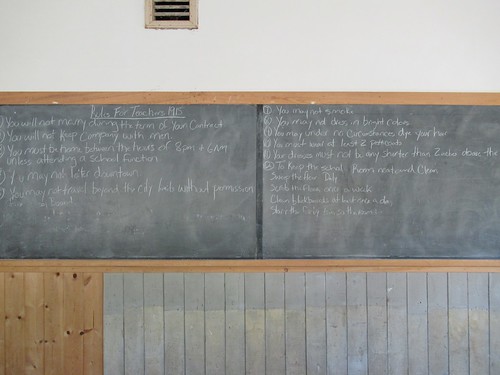 Rules For Teachers 1915
You will not marry during the term of Your Contract
You will not Keep Company with men.
You must be home between the hours of 8pm & 6AM
unless attending a School function
You may not loiter downtown
You may not travel beyond the city limits without permission
You may not smoke
You may not dress in bright colors
You may under no circumstances dye your hair
You must wear at least 2 petticoats
Your dresses must not be any shorter than 2 inches above the
To Keep the school Room neat and Clean
Sweep the floor Daily
Scrub the floor once a week
Clean blackboards at least once a day
Start the fire